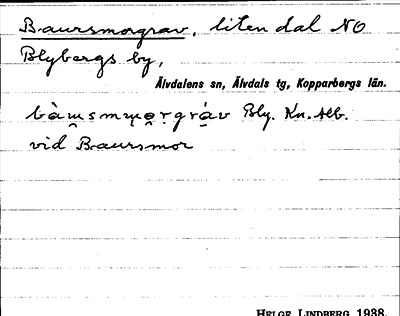 Baursmorgrav, liten dal NO
Blybergs by,
Älvdalens sn, Älvdals tg, Kopparbergs län.
Bly. Kn. Alb.
vid Baursmor
HELGE LINDBERG 1938.